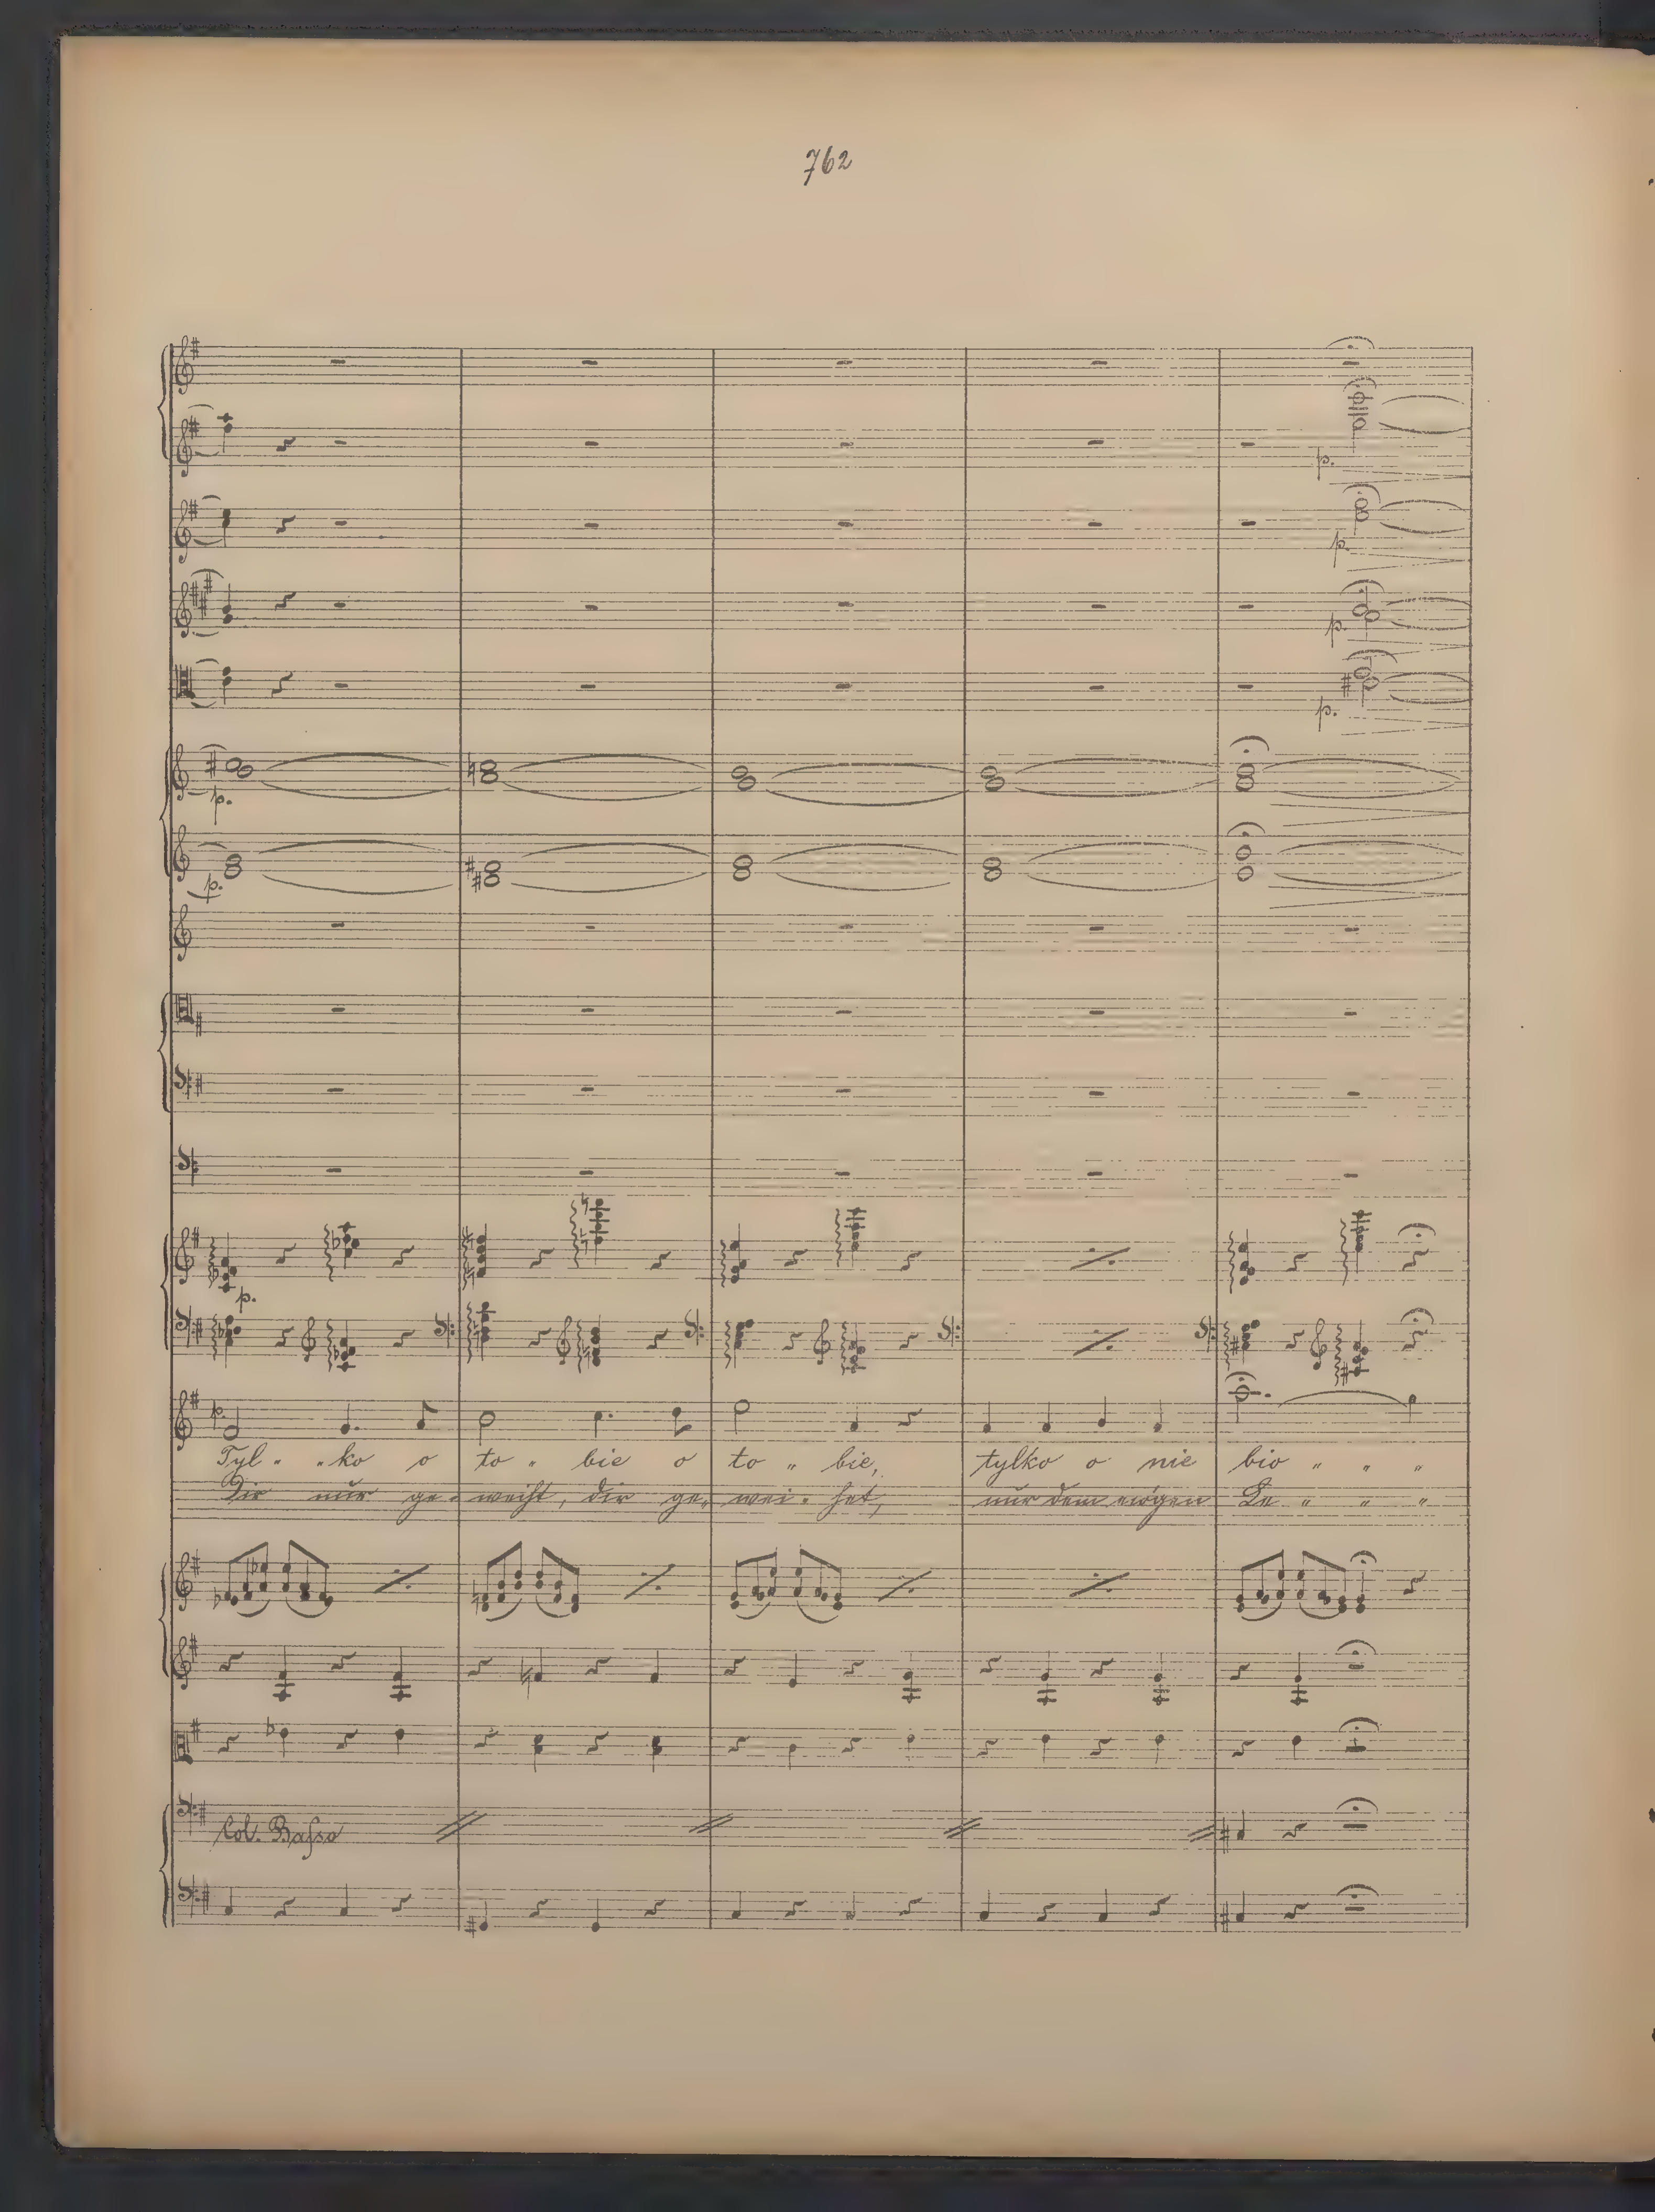 762
p.
p.
p.
p.
p.
p.
p.
p.
Tyl " " ko o to " bie o to " bie, tylko o nie bio " " "
Dir nur ge - weiht, dir ge " wei - het, nur dem ewigen Le " " "
Col. Basso